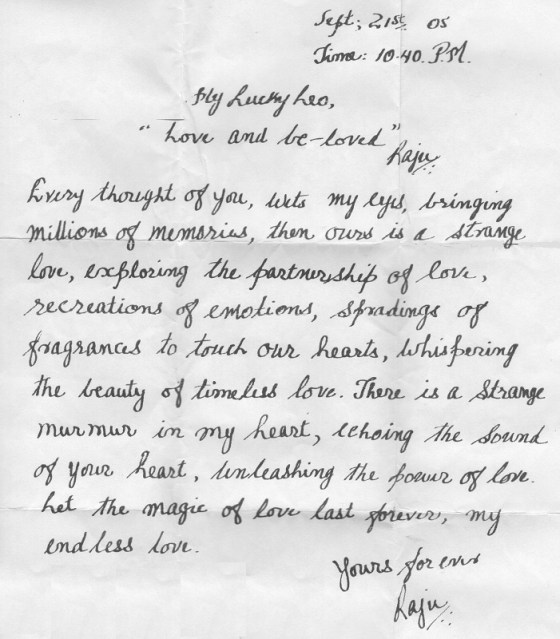 Sept; 21st 05
Time: 10.40. P.M.
My Lucky Leo,
"Love and be-loved"
Raju
Every thought of you, wets my eyes, bringing
millions of memories, then ours is a strange
love, exploring the partnership of love,
recreations of emotions, spradings of
fragrances to touch our hearts, whispering
the beauty of timeless love. There is a strange
murmur in my heart, echoing the sound
of your heart, unleashing the power of love.
Let the magic of love last forever, my
endless love.
Yours forever
Raju